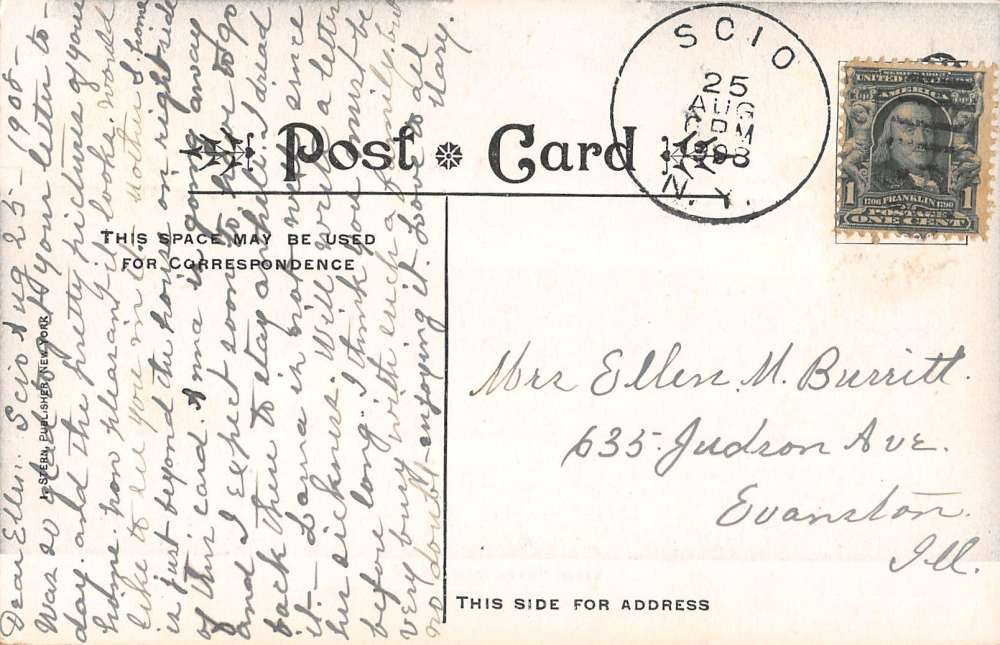 Post Card
THIS SPACE MAY BE USED
FOR CORRESPONDENCE
J. STERN, PUBLISHER, NEW YORK
Dear Ellen: Scio Aug 25 - 1908 -
Was so glad to get your letter to-
day. and the pretty pictures of your
home. how pleasant it looks. would
like to see you in it. Mother's home
is just beyond the house on right side
of this card. Ama is going away
and I expect soon to have to go
back there to stay a while. I dread
it - Lama is not well since
her sickness. Will write a letter
before long. I think you must be
very busy with such a family, but
no doubt - enjoying it. Love to all
Mary.
SCIO
25
AUG
PM
1908
N.Y.
SERIES 1902
UNITED STATES OF
AMERICA
1
1706 FRANKLIN 1790
1
POSTAGE
ONE CENT
Mrs Ellen M. Burritt.
635 Judson Ave.
Evanston.
Ill.
THIS SIDE FOR ADDRESS